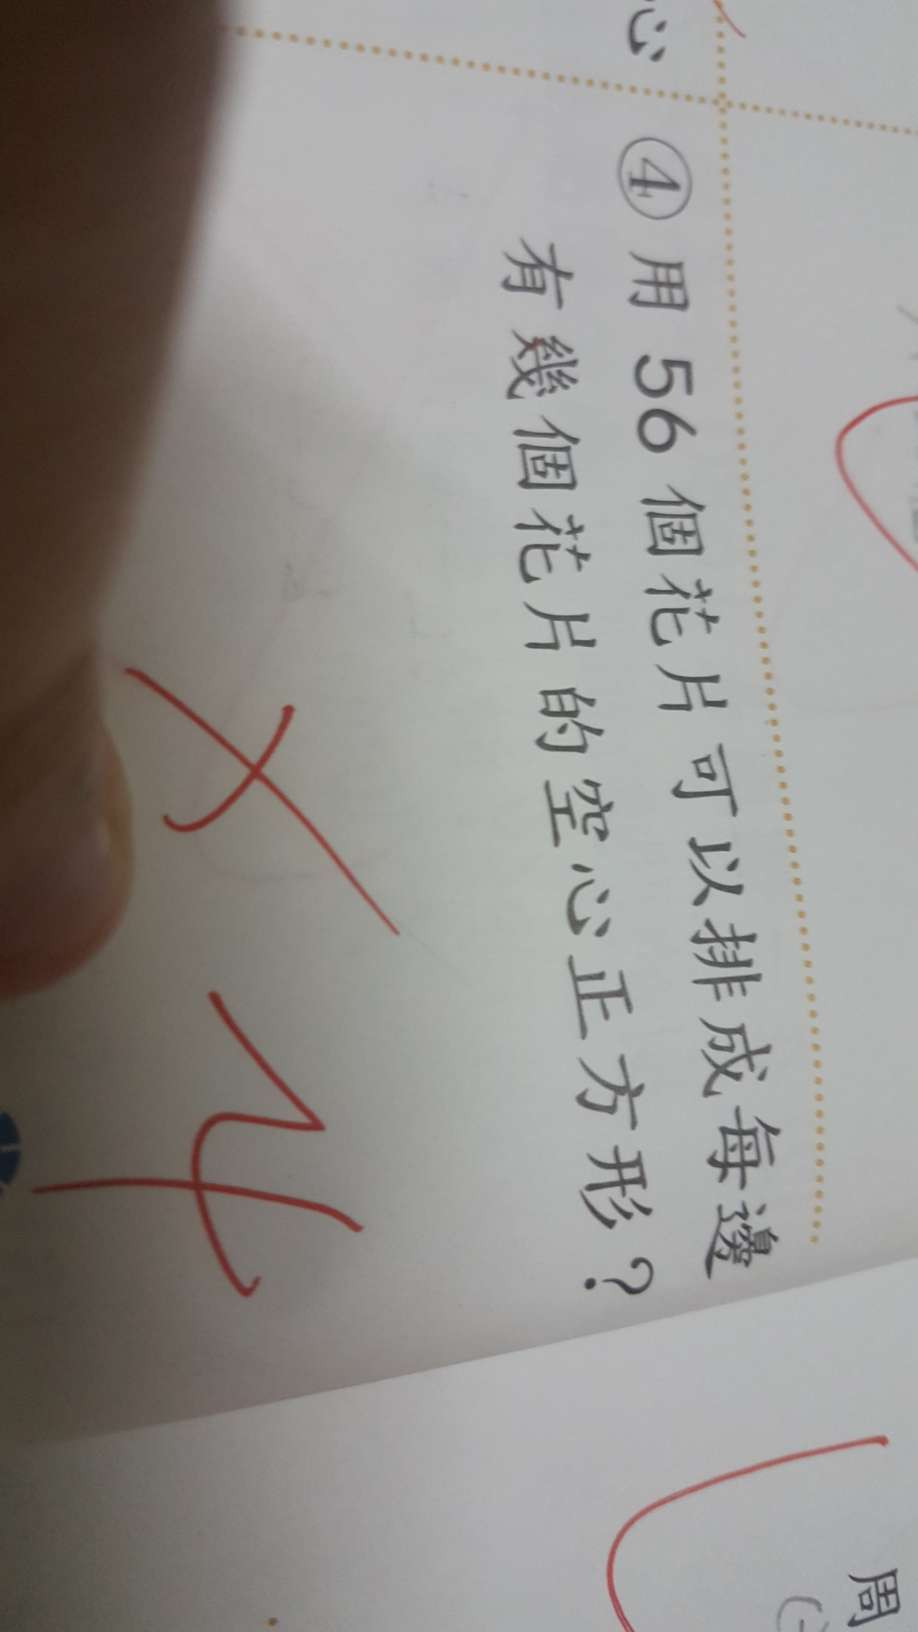 心
④ 用 56 個花片可以排成每邊
有幾個花片的空心正方形？
周